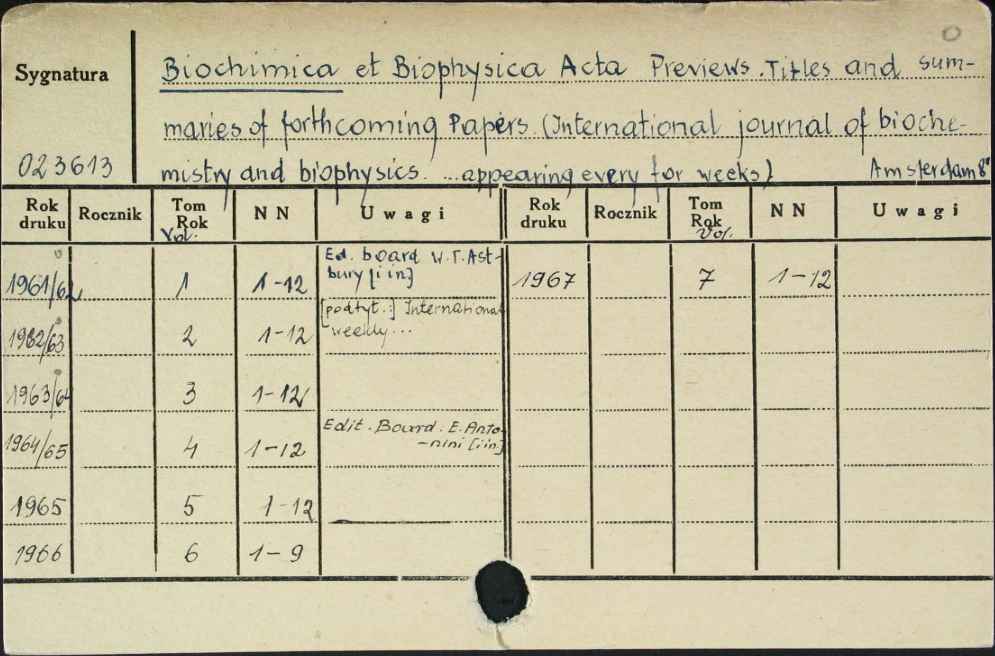 Sygnatura
Biochimica et Biophysica Acta Previews. Titles and sum-
maries of forthcoming Papers. (International journal of bioche-
023613
mistry and biophysics. ...appearing every for weeks) Amsterdam 8°
Rok druku Rocznik Tom Rok Vol. N N Uwagi Rok druku Rocznik Tom Rok Vol. N N Uwagi
Ed. board W.T. Ast-
1961/62 1 1-12 bury [i in] 1967 7 1-12
[podtyt.:] International
1962/63 2 1-12 weekly...
1963/64 3 1-12
Edit. Board. E. Anto-
1964/65 4 1-12 -nini [i in]
1965 5 1-12
1966 6 1-9